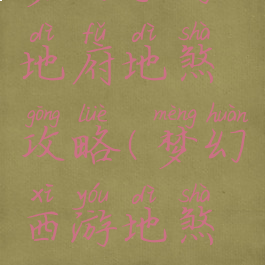 dì fǔ dì shà
地府地煞
gōng lüè mèng huàn
攻略(梦幻
xī yóu dì shà
西游地煞